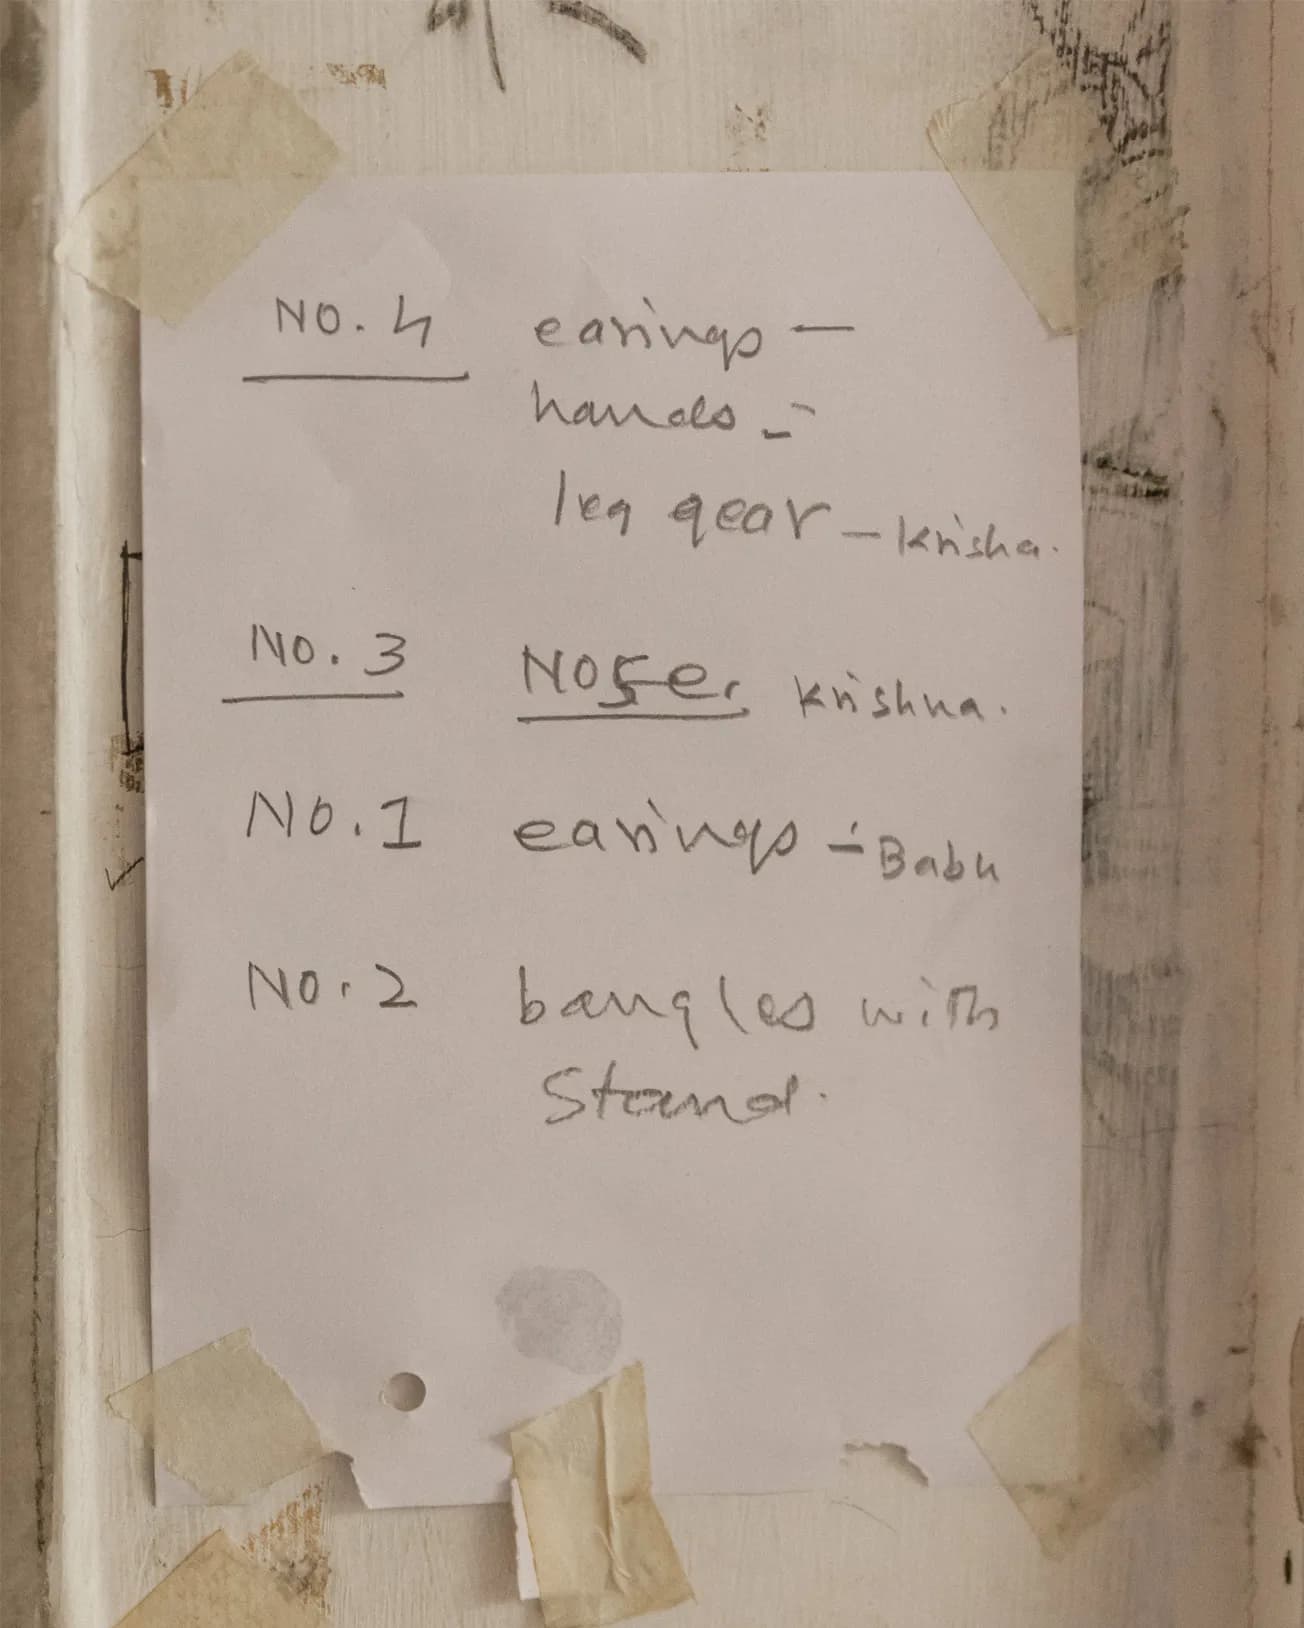 NO. 4 earings —
hands -
leg gear — Krisha.
NO. 3 NOSe. Krishna.
NO. 1 earings - Babu
NO. 2 bangles with
Stand.